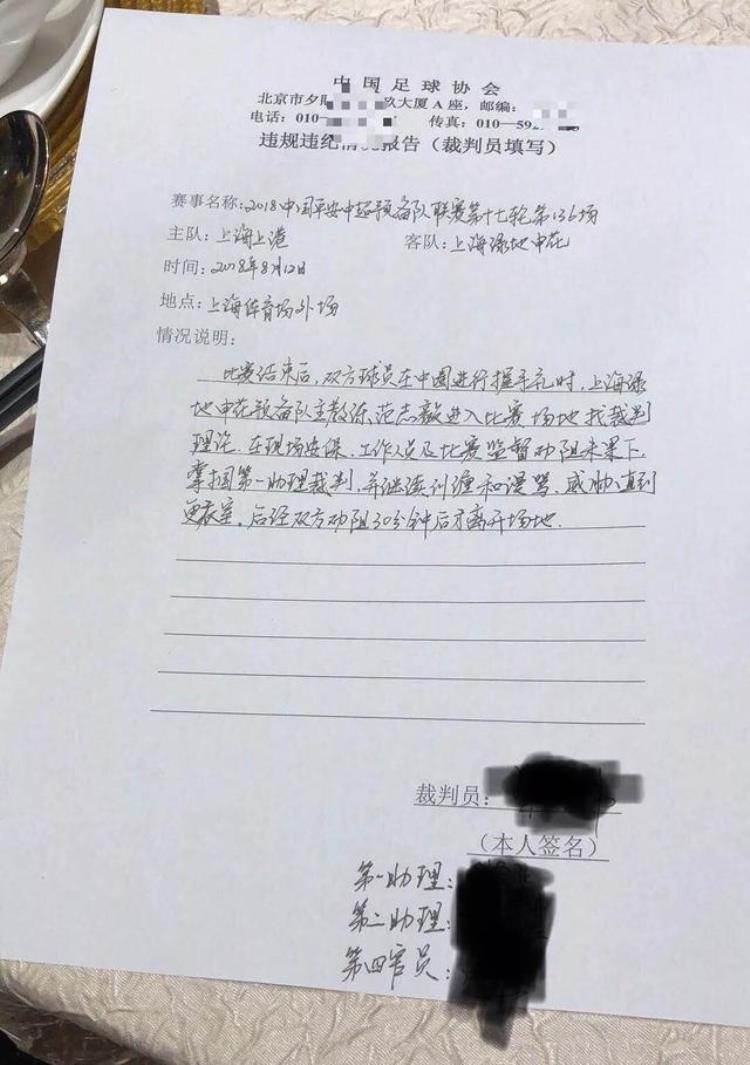 中国足球协会
北京市 大厦A座，邮编：
电话：010— 传真：010—59
违规违纪情况报告（裁判员填写）
赛事名称：2018中国平安中超预备队联赛第十七轮第136场
主队：上海上港 客队：上海绿地申花
时间：2018年8月12日
地点：上海体育场外场
情况说明：
比赛结束后，双方球员在中圈进行握手礼时，上海绿
地申花预备队主教练范志毅进入比赛场地找裁判
理论。在现场安保、工作人员及比赛监督劝阻未果下，
掌掴第一助理裁判，并继续纠缠和谩骂、威胁直到
更衣室，后经双方劝阻30分钟后才离开场地.
裁判员：
（本人签名）
第一助理：
第二助理：
第四官员：